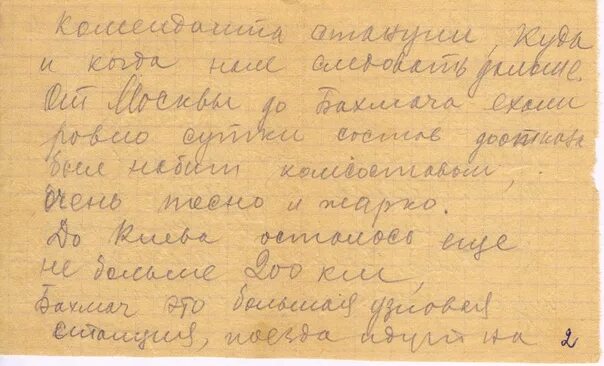 коменданта станции, куда
и когда нам следовать дальше.
От Москвы до Бахмача ехали
ровно сутки состав
был набит комсоставом,
очень тесно и жарко.
До Киева осталось еще
не больше 200 км,
Бахмач это большая узловая
станция, поезда идут на 2